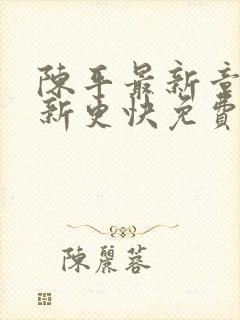 陳平最新章
新更快免費
陳麗蓉